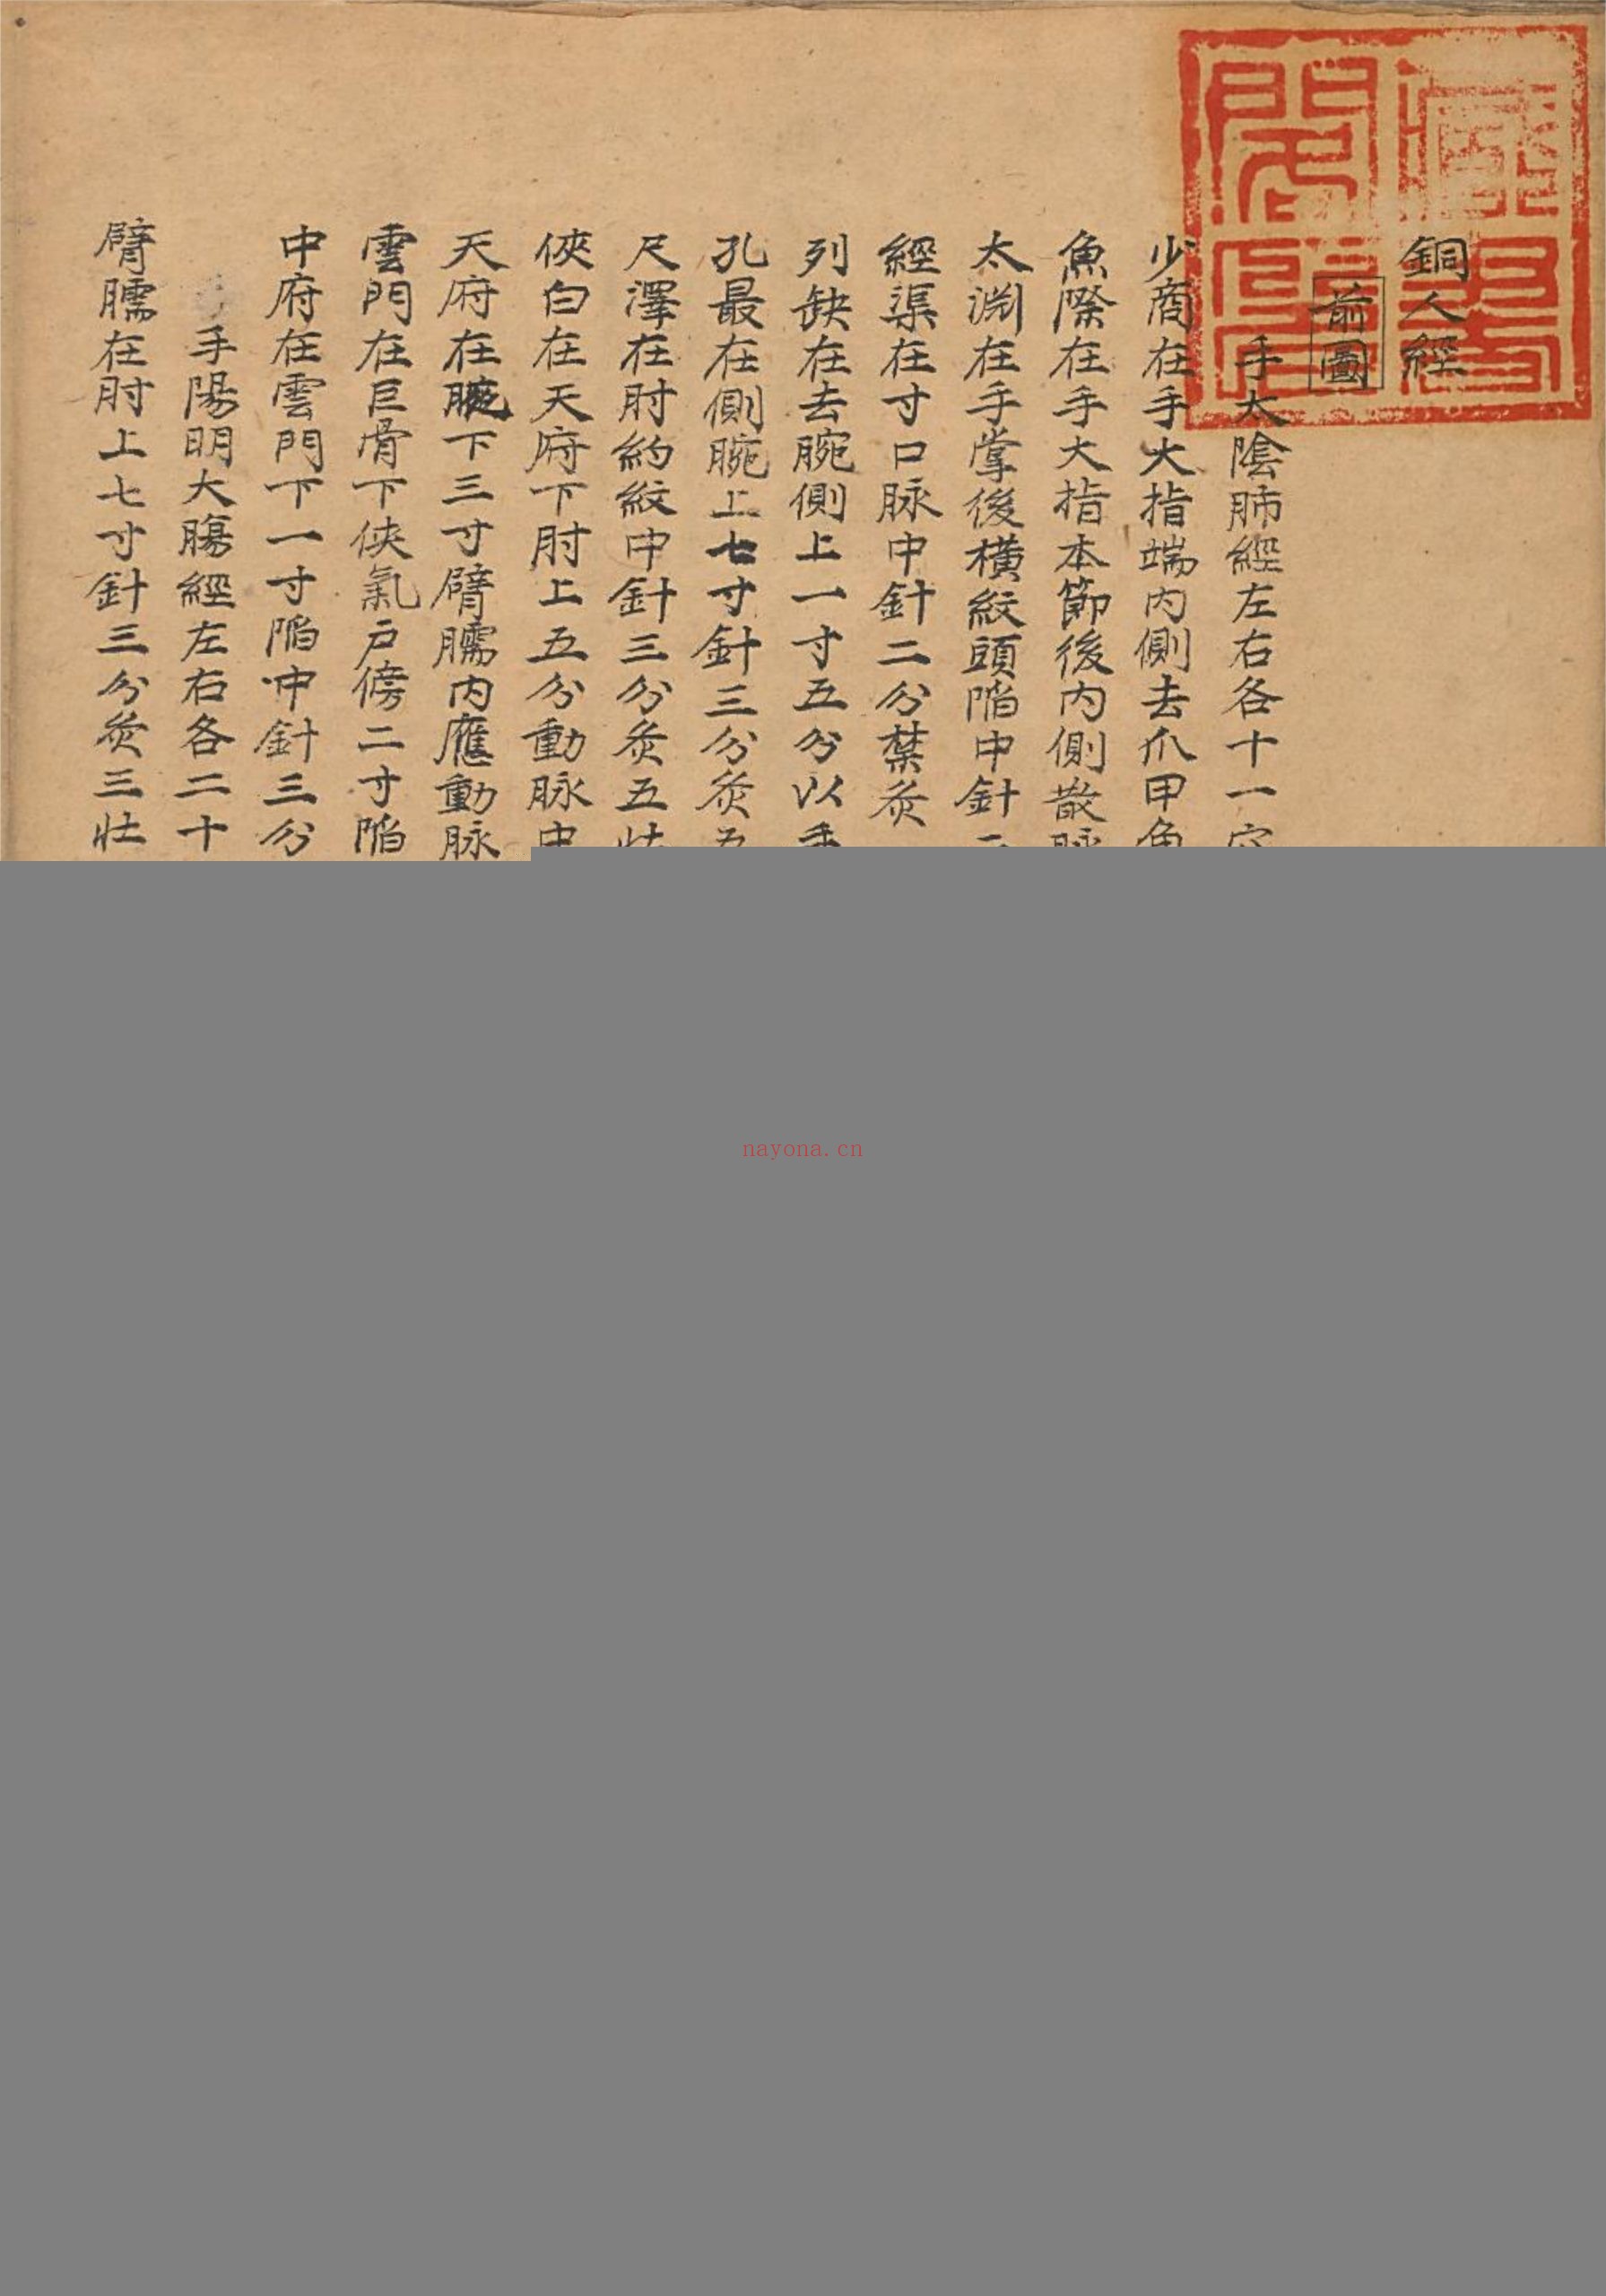 銅人經
前圖
手太陰肺經左右各十一穴
少商在手大指端內側去爪甲角
魚際在手大指本節後內側散脉
太渊在手掌後橫紋頭陷中針二
經渠在寸口脉中針二分禁灸
列缺在去腕側上一寸五分以手
孔最在側腕上七寸針三分灸五
尺澤在肘約紋中針三分灸五壮
俠白在天府下肘上五分動脉中
天府在腋下三寸臂臑內應動脉
雲門在巨骨下俠氣户傍二寸陷
中府在雲門下一寸陷中針三分
手陽明大腸經左右各二十
臂臑在肘上七寸針三分灸三壮
nayona.cn